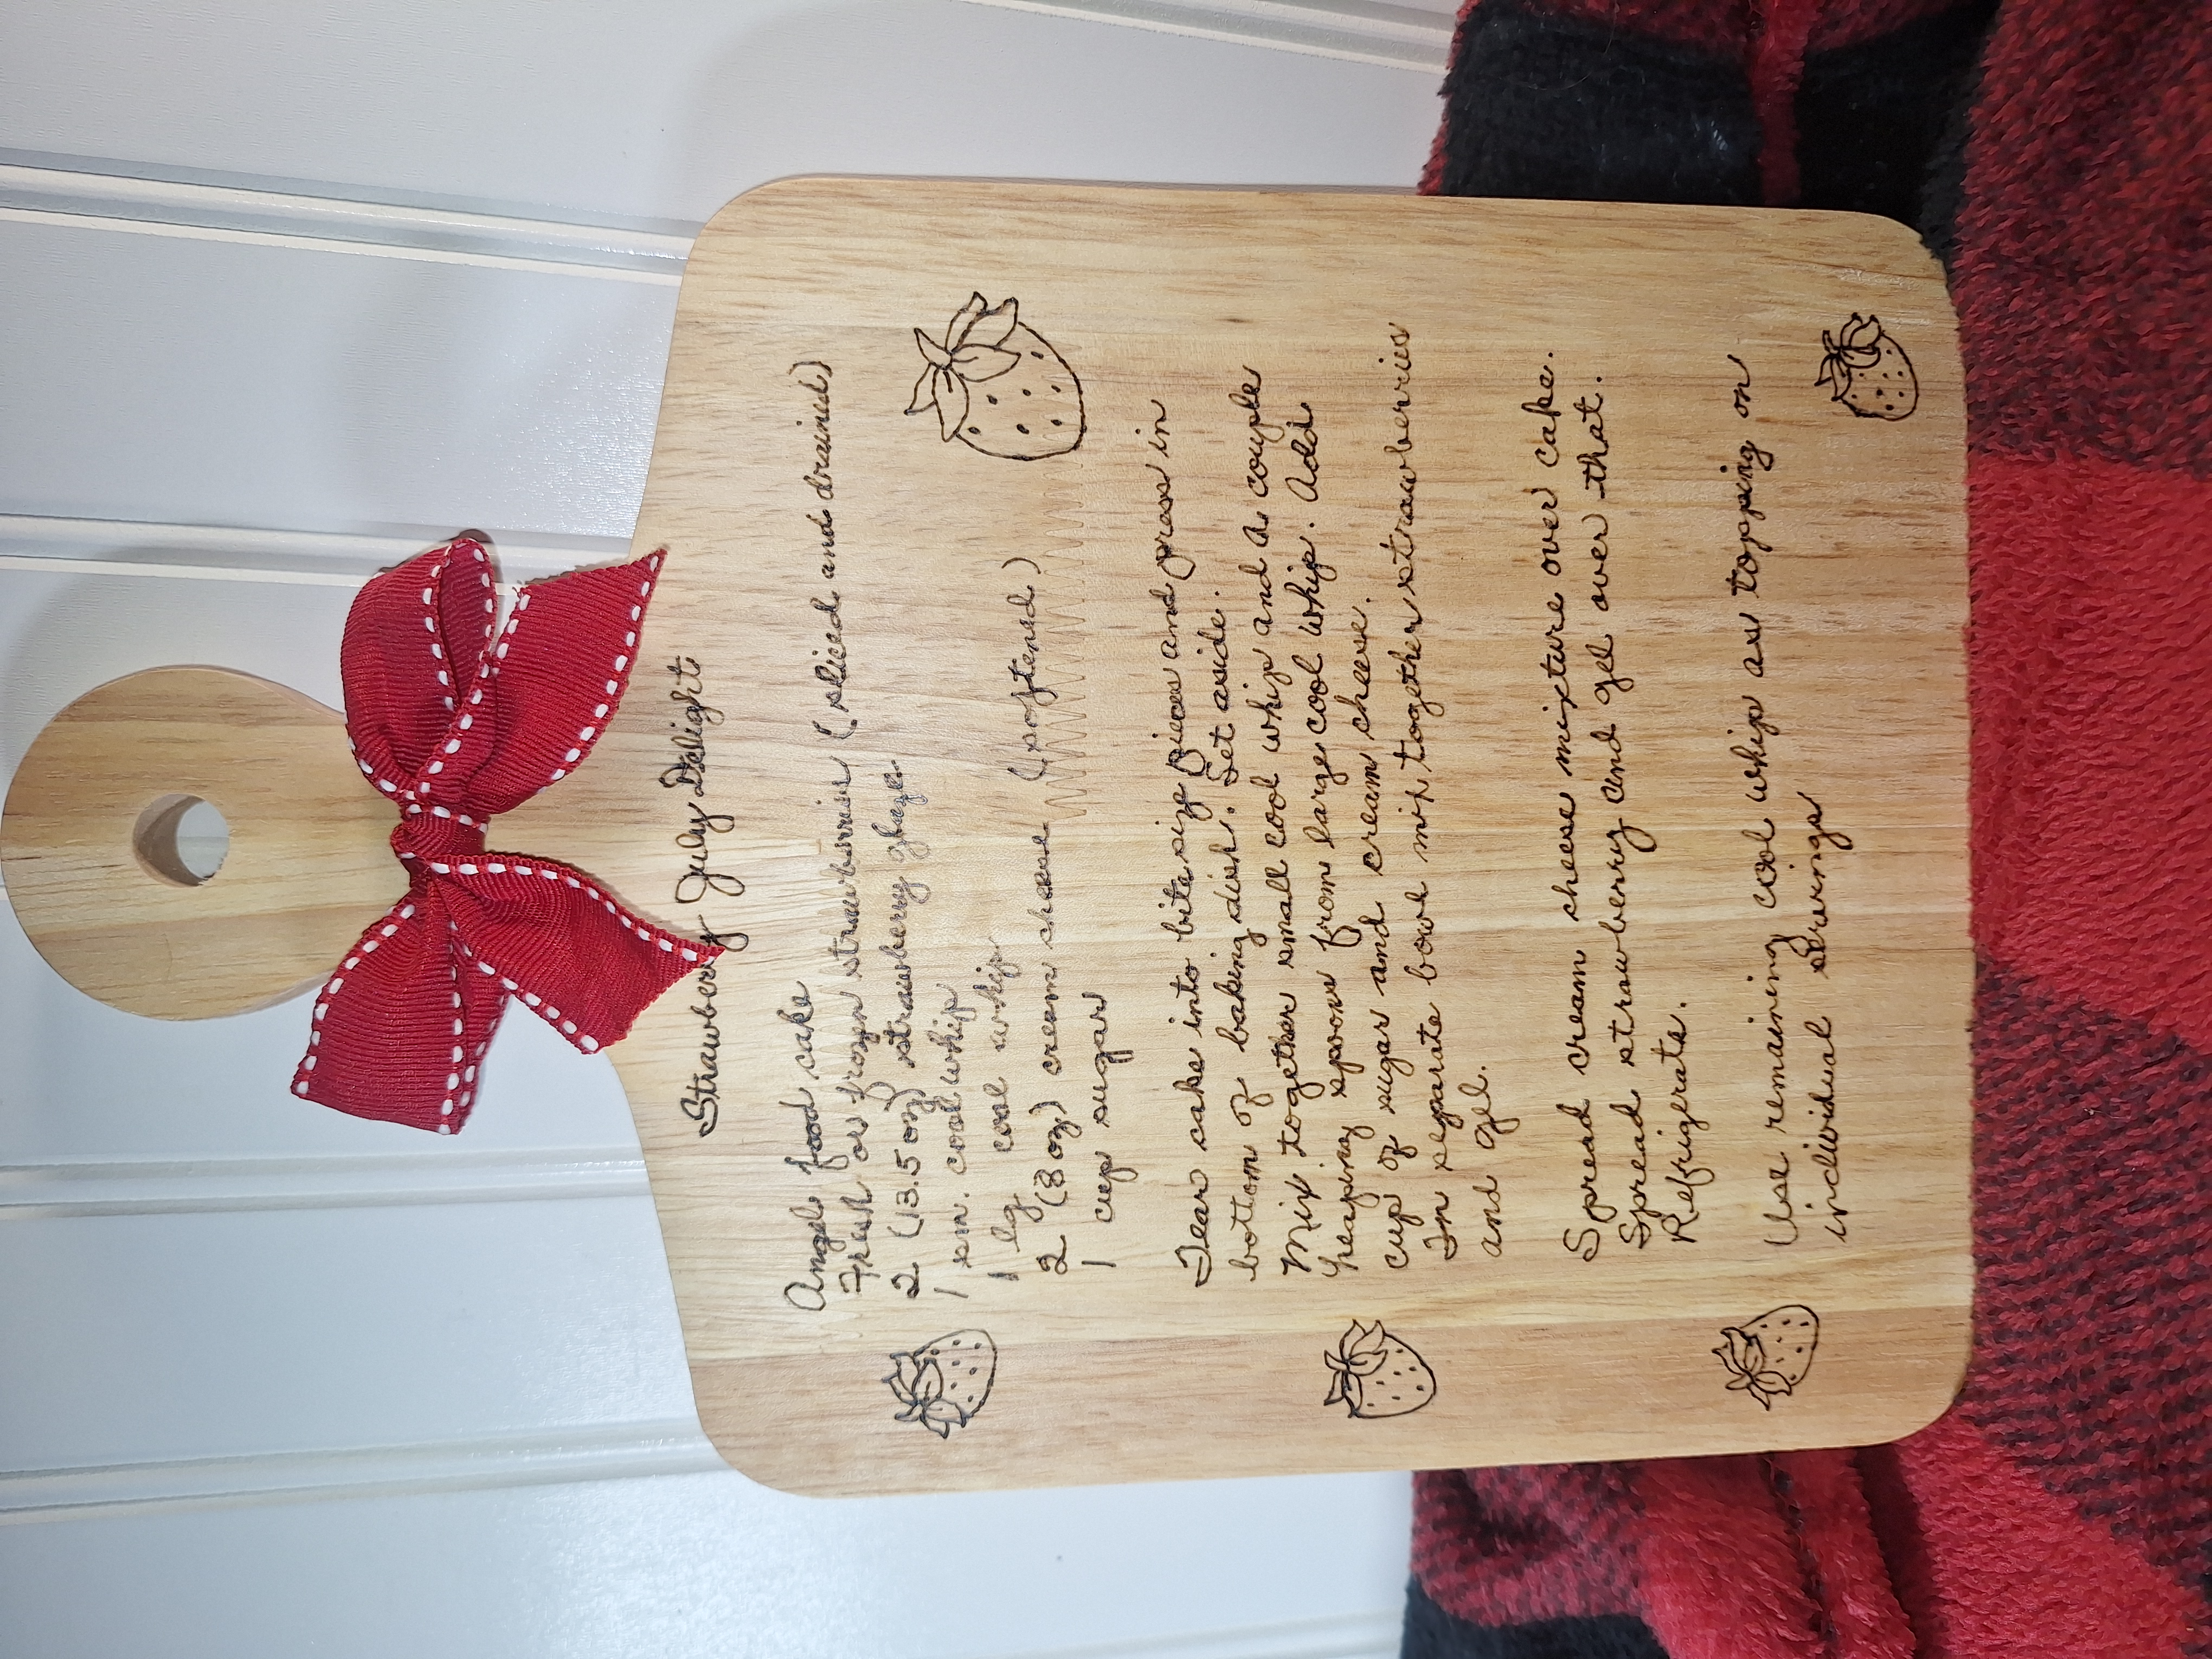 Strawberry July Delight
Angel food cake
Fresh or frozen strawberries (sliced and drained)
2 (13.5 oz) strawberry glaze
1 sm. cool whip
1 lg cool whip
2 (8 oz) cream cheese (softened)
1 cup sugar
Tear cake into bite size pieces and press in
bottom of baking dish. Set aside.
Mix together small cool whip and a couple
heaping spoons from large cool whip. Add
cup of sugar and cream cheese.
In separate bowl mix together strawberries
and gel.
Spread cream cheese mixture over cake.
Spread strawberry and gel over that.
Refrigerate.
Use remaining cool whip as topping on
individual servings